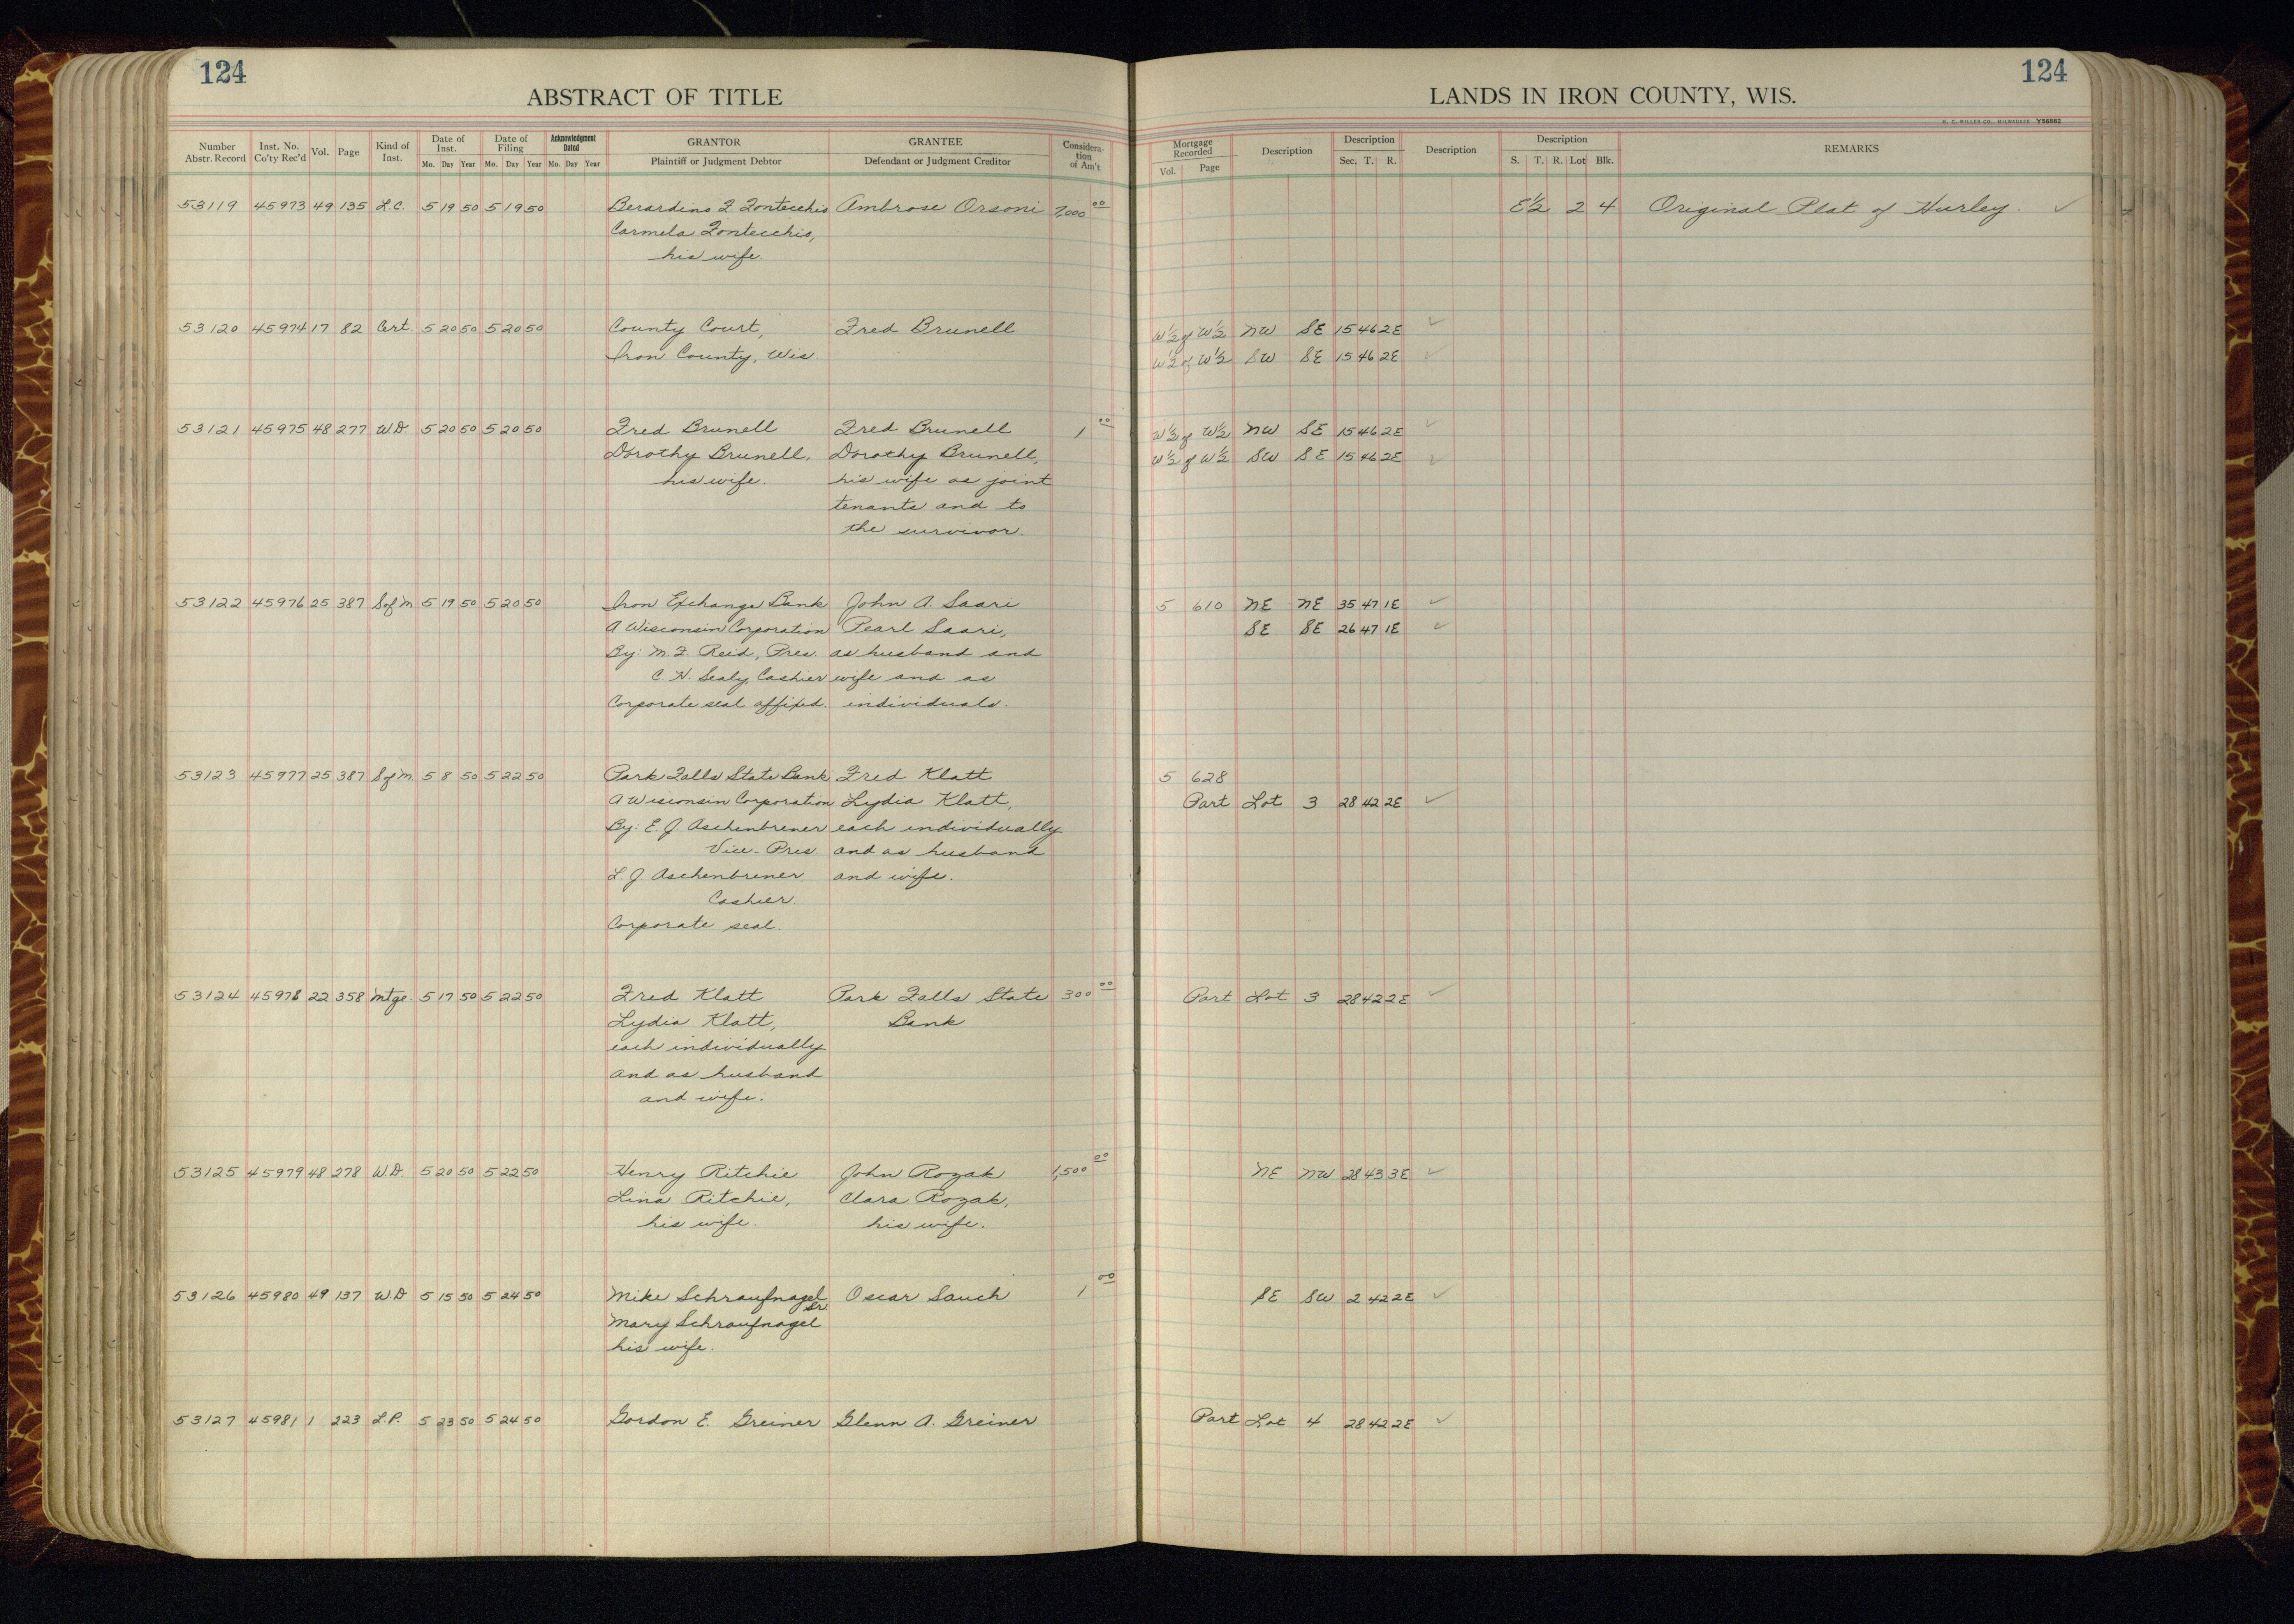 124
ABSTRACT OF TITLE
LANDS IN IRON COUNTY, WIS.
124
H. C. MILLER CO., MILWAUKEE Y56882
Number Abstr. Record Inst. No. Co'ty Rec'd Vol. Page Kind of Inst. Date of Inst. Mo. Day Year Date of Filing Mo. Day Year Acknowledgment Dated Mo. Day Year GRANTOR Plaintiff or Judgment Debtor GRANTEE Defendant or Judgment Creditor Considera-tion of Am't
Mortgage Recorded Vol. Page Description Description Sec. T. R. Description Description S. T. R. Lot Blk. REMARKS
53119 45973 49 135 L.C. 5 19 50 5 19 50 Berardino F. Fontecchio Ambrose Orsoni 7,000 00 E½ 2 4 Original Plat of Hurley.
Carmela Fontecchio,
his wife.
53120 45974 17 82 Cert. 5 20 50 5 20 50 County Court, Fred Brunell W½ of W½ NW SE 15 46 2E
Iron County, Wis. W½ of W½ SW SE 15 46 2E
53121 45975 48 277 W.D. 5 20 50 5 20 50 Fred Brunell Fred Brunell 1 00 W½ of W½ NW SE 15 46 2E
Dorothy Brunell, Dorothy Brunell, W½ of W½ SW SE 15 46 2E
his wife. his wife as joint
tenants and to
the survivor.
53122 45976 25 387 S of M 5 19 50 5 20 50 Iron Exchange Bank John A. Saari 5 610 NE NE 35 47 1E
A Wisconsin Corporation Pearl Saari, SE SE 26 47 1E
By: M. F. Reid, Pres. as husband and
C. H. Sealy, Cashier wife and as
Corporate seal affixed. individuals.
53123 45977 25 387 S of M. 5 8 50 5 22 50 Park Falls State Bank Fred Klatt 5 628
A Wisconsin Corporation Lydia Klatt, Part Lot 3 28 42 2E
By: E. J. Aschenbrener each individually
Vice-Pres. and as husband
L. J. Aschenbrener and wife.
Cashier
Corporate seal.
53124 45978 22 358 Mtge. 5 17 50 5 22 50 Fred Klatt Park Falls State 300 00 Part Lot 3 28 42 2E
Lydia Klatt, Bank
each individually
and as husband
and wife.
53125 45979 48 278 W.D. 5 20 50 5 22 50 Henry Ritchie John Rozak 1,500 00 NE NW 28 43 3E
Lina Ritchie, Clara Rozak,
his wife. his wife.
53126 45980 49 137 W.D 5 15 50 5 24 50 Mike Schraufnagel Sr. Oscar Sauch 1 00 SE SW 2 42 2E
Mary Schraufnagel
his wife.
53127 45981 1 223 L.P. 5 23 50 5 24 50 Gordon E. Greiner Glenn A. Greiner Part Lot 4 28 42 2E